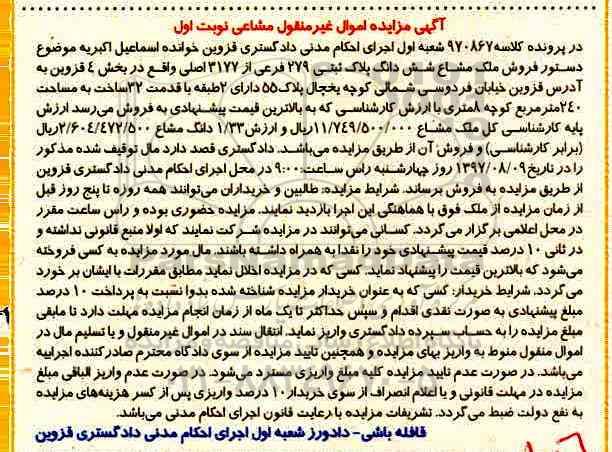 آگهی مزایده اموال غیرمنقول مشاعی نوبت اول
در پرونده کلاسه ۹۷۰۸۶۷ شعبه اول اجرای احکام مدنی دادگستری قزوین خوانده اسماعیل اکبریه موضوع
دستور فروش ملک مشاع شش دانگ پلاک ثبتی ۲۷۹ فرعی از ۳۱۷۷ اصلی واقع در بخش ۴ قزوین به
آدرس قزوین خیابان فردوسی شمالی کوچه یخچال پلاک ۵۵ دارای ۲طبقه با قدمت ۳۲ساخت به مساحت
۲۴۰مترمربع کوچه ۸متری با ارزش کارشناسی که به بالاترین قیمت پیشنهادی به فروش می‌رسد ارزش
پایه کارشناسی کل ملک مشاع ۱۱/۷۴۹/۵۰۰/۰۰۰ریال و ارزش ۱/۳۳ دانگ مشاع ۲/۶۰۴/۴۷۲/۵۰۰ریال
(برابر کارشناسی) و فروش آن از طریق مزایده می‌باشد. دادگستری قصد دارد مال توقیف شده مذکور
را در تاریخ ۱۳۹۷/۰۸/۰۹ روز چهارشنبه راس ساعت: ۹:۰۰ در محل اجرای احکام مدنی دادگستری قزوین
از طریق مزایده به فروش برساند. شرایط مزایده: طالبین و خریداران می‌توانند همه روزه تا پنج روز قبل
از زمان مزایده از ملک فوق با هماهنگی این اجرا بازدید نمایند. مزایده حضوری بوده و راس ساعت مقرر
در محل اعلامی برگزار می‌گردد. کسانی می‌توانند در مزایده شرکت نمایند که اولا منبع قانونی نداشته و
در ثانی ۱۰ درصد قیمت پیشنهادی خود را نقدا به همراه داشته باشند. مال مورد مزایده به کسی فروخته
می‌شود که بالاترین قیمت را پیشنهاد نماید. کسی که در مزایده اخلال نماید مطابق مقررات با ایشان بر خورد
می‌گردد. شرایط خریدار: کسی که به عنوان خریدار مزایده شناخته شده بدوا نسبت به پرداخت ۱۰ درصد
مبلغ پیشنهادی به صورت نقدی اقدام و سپس حداکثر تا یک ماه از زمان انجام مزایده مهلت دارد تا مابقی
مبلغ مزایده را به حساب سپرده دادگستری واریز نماید. انتقال سند در اموال غیرمنقول و یا تسلیم مال در
اموال منقول منوط به واریز بهای مزایده و همچنین تایید مزایده از سوی دادگاه محترم صادرکننده اجراییه
می‌باشد. در صورت عدم تایید مزایده کلیه مبلغ واریزی مسترد می‌شود. در صورت عدم واریز الباقی مبلغ
مزایده در مهلت قانونی و یا اعلام انصراف از سوی خریدار ۱۰ درصد واریزی پس از کسر هزینه‌های مزایده
به نفع دولت ضبط می‌گردد. تشریفات مزایده با رعایت قانون اجرای احکام مدنی می‌باشد.
قافله باشی- دادورز شعبه اول اجرای احکام مدنی دادگستری قزوین